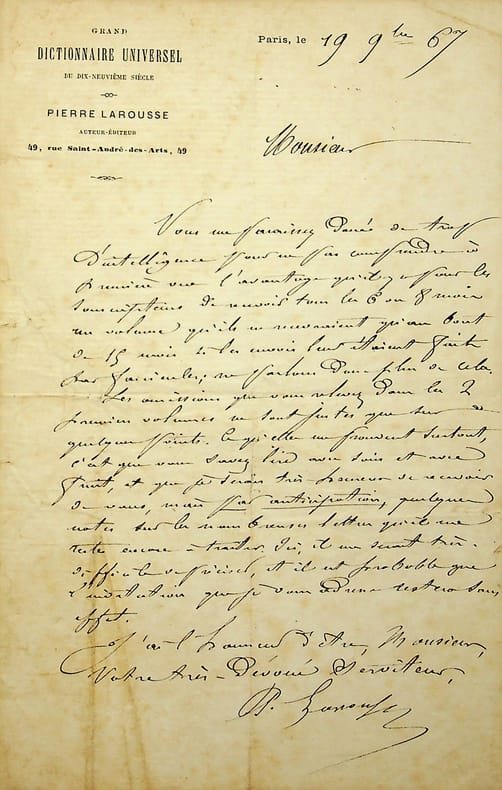 GRAND
DICTIONNAIRE UNIVERSEL
DU DIX-NEUVIÈME SIÈCLE
PIERRE LAROUSSE
AUTEUR-ÉDITEUR
49, rue Saint-André-des-Arts, 49
Paris, le 19 9bre 67
Monsieur
Vous me paraissez doué de trop
d'intelligence pour ne pas comprendre à
première vue l'avantage qu'il y a pour les
souscripteurs de recevoir tous les 6 ou 8 mois
un volume qu'ils ne recevraient qu'au bout
de 15 mois si les envois leur étaient faits
par fascicules; ne parlons donc plus de cela.
Les omissions que vous relevez dans les 2
premiers volumes ne sont justes que sur
quelques points. Ce qu'elles me prouvent surtout,
c'est que vous savez lire avec soin et avec
fruit, et que je serais très heureux de recevoir
de vous, mais par anticipation, quelques
notes sur les nombreuses lettres qu'il me
reste encore à traiter. Ici, il me serait très
difficile de préciser, et il est probable que
l'invitation que je vous adresse restera sans
effet.
J'ai l'honneur d'être, Monsieur,
Votre très-dévoué serviteur,
P. Larousse